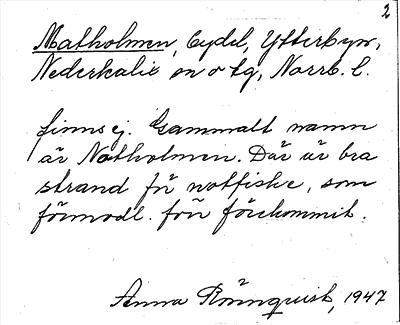 2
Matholmen, Cydl, Ytterbyn,
Nederkalix sn o tg, Norrb. l.
finns ej. Gammalt namn
är Notholmen. Där är bra
strand för notfiske, som
förmodl. förr förekommit.
Anna Rönnquist, 1947